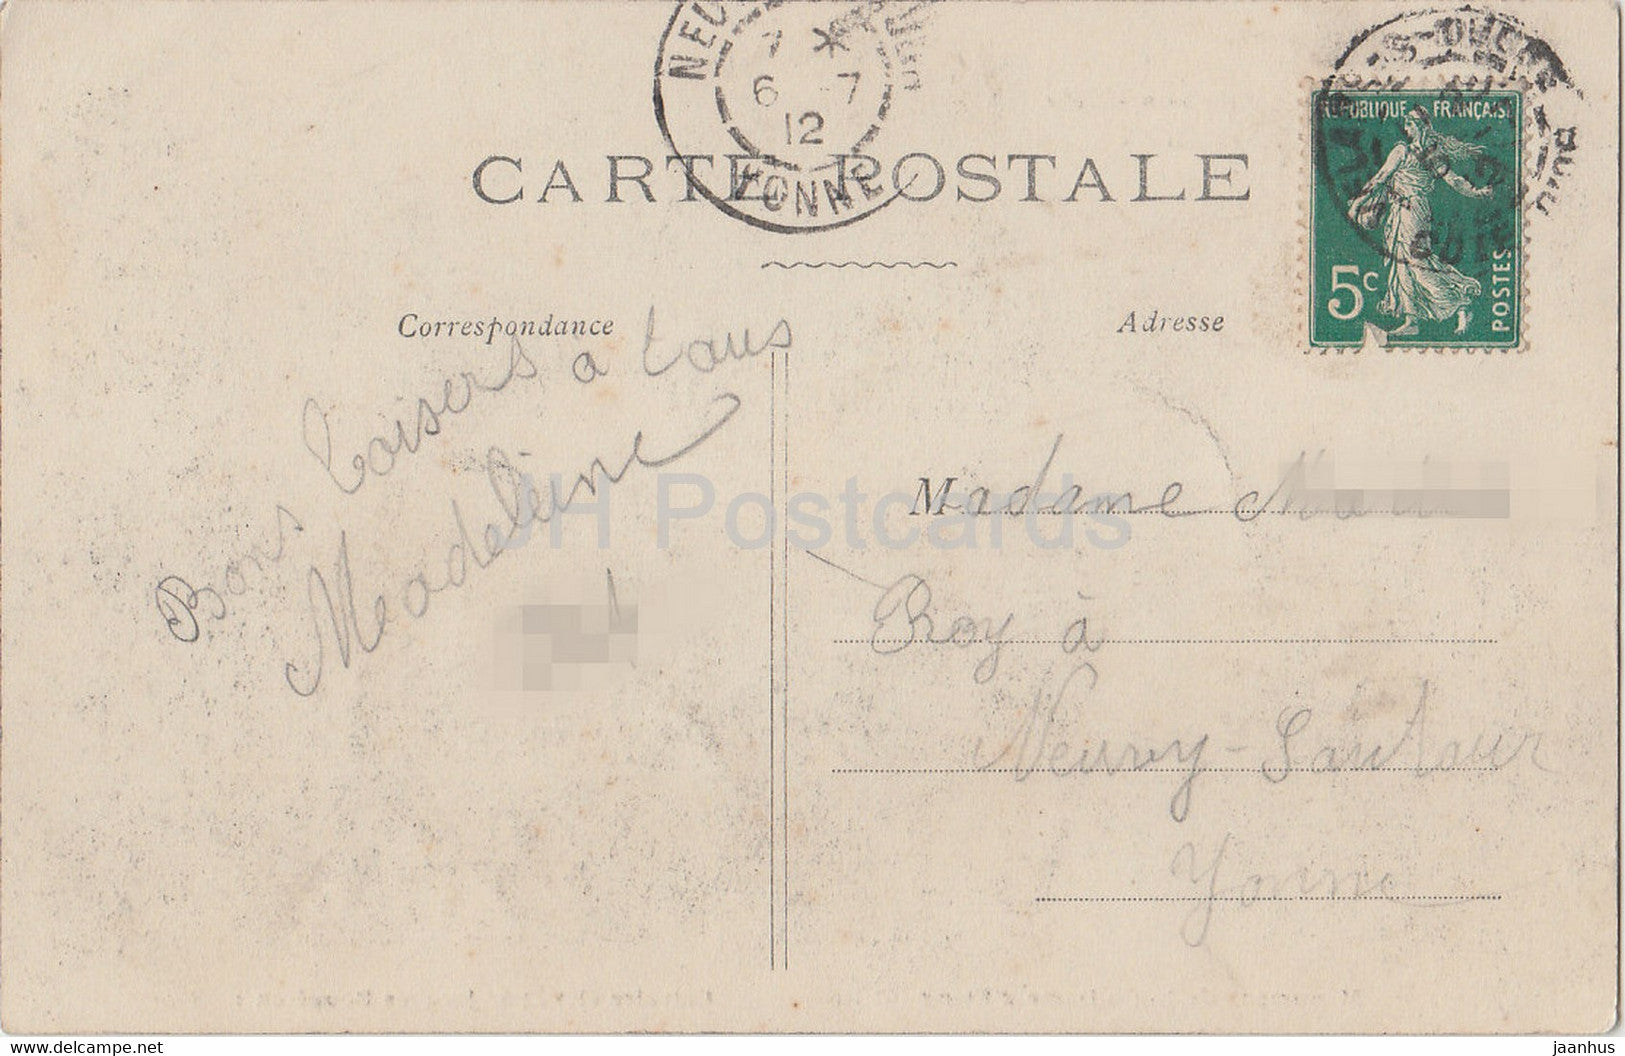 6 7
12
YONNE
CARTE POSTALE
REPUBLIQUE FRANÇAISE
5c
POSTES
Correspondance
Adresse
Bons baisers a tous
Madeleine
Madame
Roy à
Neuvy-Sautour
Yonne
JH Postcards
delcampe.net
jaanhus